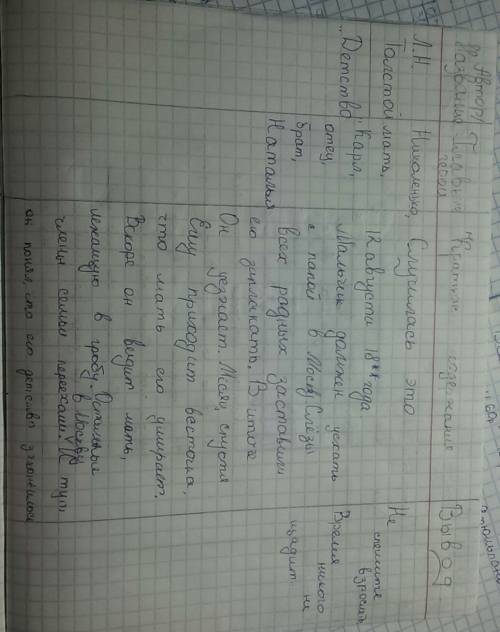 Автор/
Название
Л.Н.
Толстой
"Детство"
Главные
герои
Николенька,
мать,
Карл,
отец,
брат,
Наталья
Краткое содежания
Случилась это
12 августа 18** года
Мальчик должен уехать
с папой в Москву. Слёзы
всех родных заставили
его заплакать. В итоге
Он уезжает. Месяц спустя
Ему приходит весточка,
что мать его умирает.
Вскоре он видит мать,
лежащую в гробу. Остальные
члены семьи переехали в Москву. И тут
он понял, что его детство закончилось
Вывод
Не
спешите
взрослеть
Время
никого не
щадит